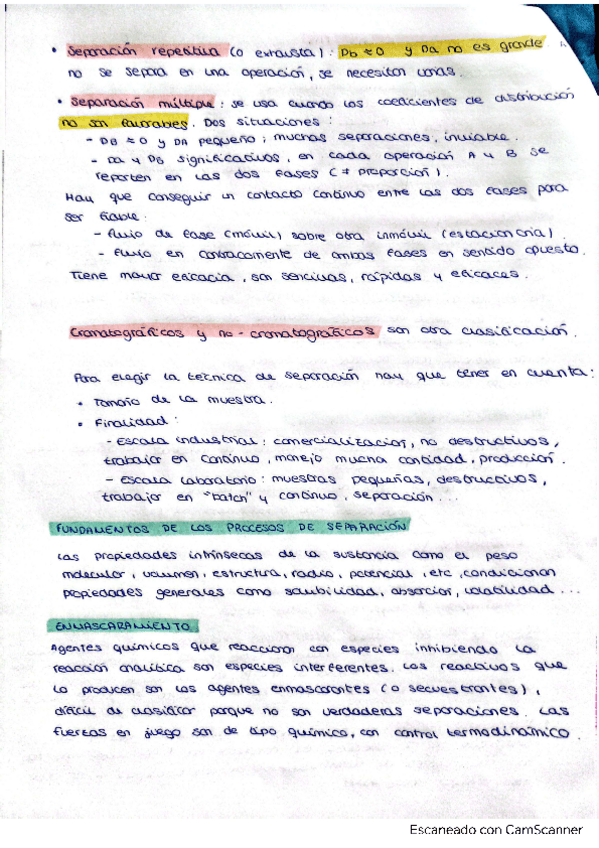 • Separación repetitiva (o exhausta): DB ≈ 0 y DA no es grande.
no se separa en una operación, se necesitan varias.
• Separación múltiple: se usa cuando los coeficientes de distribución
no son favorables. Dos situaciones:
- DB ≈ 0 y DA pequeño; muchas separaciones, inviable.
- DA y DB significativos, en cada operación A y B se
reparten en las dos fases (≠ proporción).
Hay que conseguir un contacto continuo entre las dos fases para
ser fiable:
- flujo de fase (móvil) sobre otra inmóvil (estacionaria).
- flujo en contracorriente de ambas fases en sentido opuesto.
Tiene mayor eficacia, son sencillas, rápidas y eficaces.
Cromatográficos y no-cromatográficos son otra clasificación.
Para elegir la técnica de separación hay que tener en cuenta:
• Tamaño de la muestra.
• Finalidad:
- Escala industrial: comercialización, no destructivos,
trabajar en continuo, manejo mucha cantidad, producción.
- Escala laboratorio: muestras pequeñas, destructivos,
trabajar en "batch" y continuo, separación...
FUNDAMENTOS DE LOS PROCESOS DE SEPARACIÓN
Las propiedades intrínsecas de la sustancia como el peso
molecular, volumen, estructura, radio, potencial, etc, condicionan
propiedades generales como solubilidad, absorción, volatilidad...
ENMASCARAMIENTO
Agentes químicos que reaccionan con especies inhibiendo la
reacción analítica son especies interferentes. Los reactivos que
lo producen son los agentes enmascarantes (o secuestrantes),
difícil de clasificar porque no son verdaderas separaciones. Las
fuerzas en juego son de tipo químico, con control termodinámico.
Escaneado con CamScanner